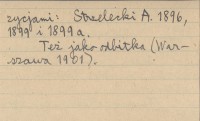 zycjami: Strzelecki A. 1896,
1899 i 1899a.
Też jako odbitka (War-
szawa 1901).